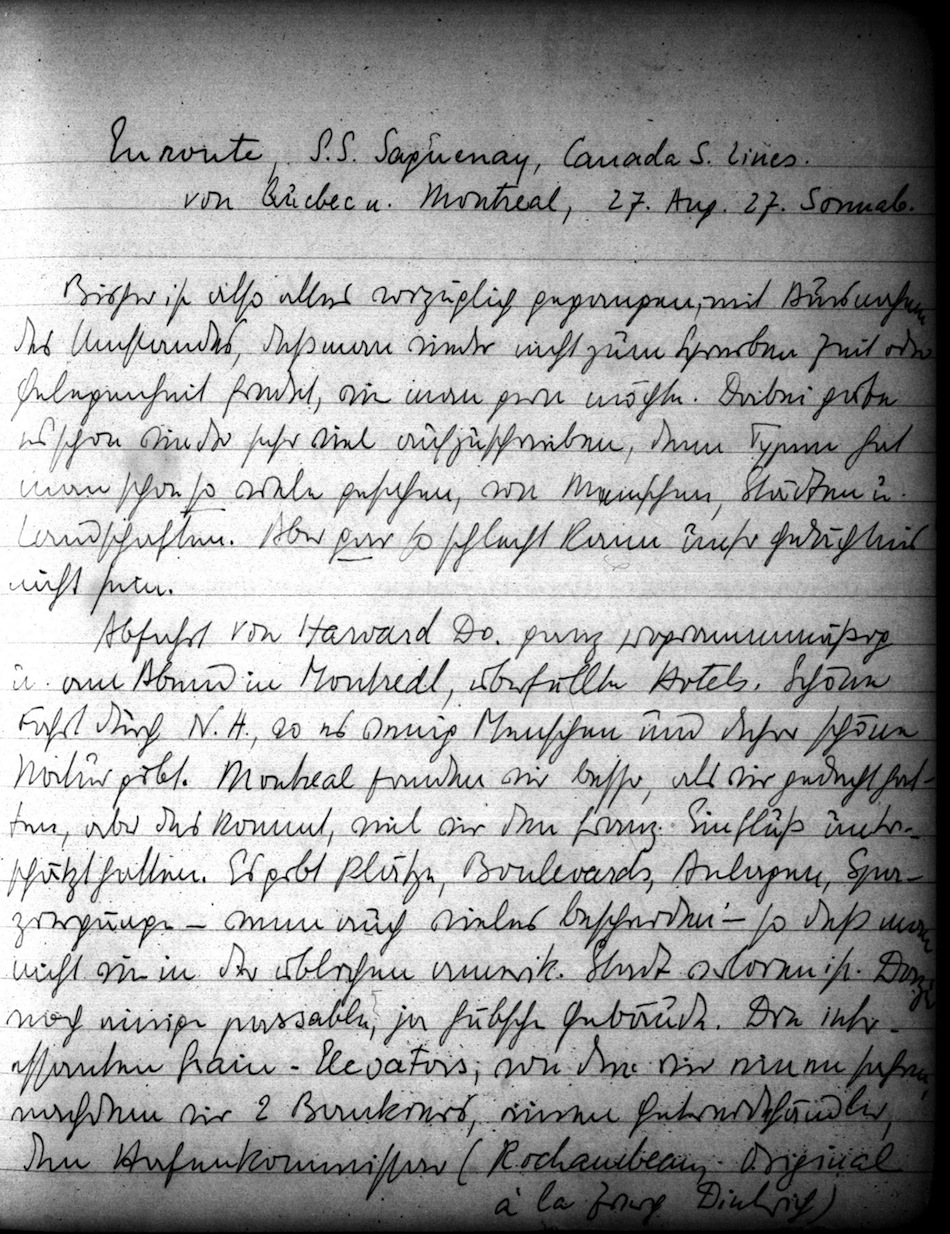 En route, S.S. Saguenay, Canada S. Lines.
von Quebec n. Montreal, 27. Aug. 27. Sonnab.
Bisher ist also alles vorzüglich gegangen, mit Ausnahme
des Umstandes, daß man wieder nicht zum Schreiben Zeit oder
Gelegenheit findet, wie man gern möchte. Dabei gäbe
es schon wieder sehr viel aufzuschreiben, denn Typen hat
man schon so viele gesehen, von Menschen, Städten u.
Landschaften. Aber gar so schlecht kann unser Gedächtnis
nicht sein.
Abfahrt von Harvard Do. ganz programmmäßig
u. am Abend in Montreal, überfüllte Hotels. Schöne
Fahrt durch N.H., wo es wenig Menschen und daher schöne
Natur gibt. Montreal fanden wir besser, als wir gedacht hat-
ten, aber das kommt, weil wir den franz. Einfluß unter-
schätzt hatten. Es gibt Plätze, Boulevards, Anlagen, Spa-
ziergänge – wenn auch vieles bescheiden – so daß man
nicht wie in der üblichen amerik. Stadt verloren ist. Dazu
noch einige passable, ja hübsche Gebäude. Die inter-
essanten Grain-Elevators, von denen wir einen sahen,
nachdem wir 2 Bankiers, einen Getreidehändler,
den Hafenkommissar (Rochambeau Original
à la Dietrich)